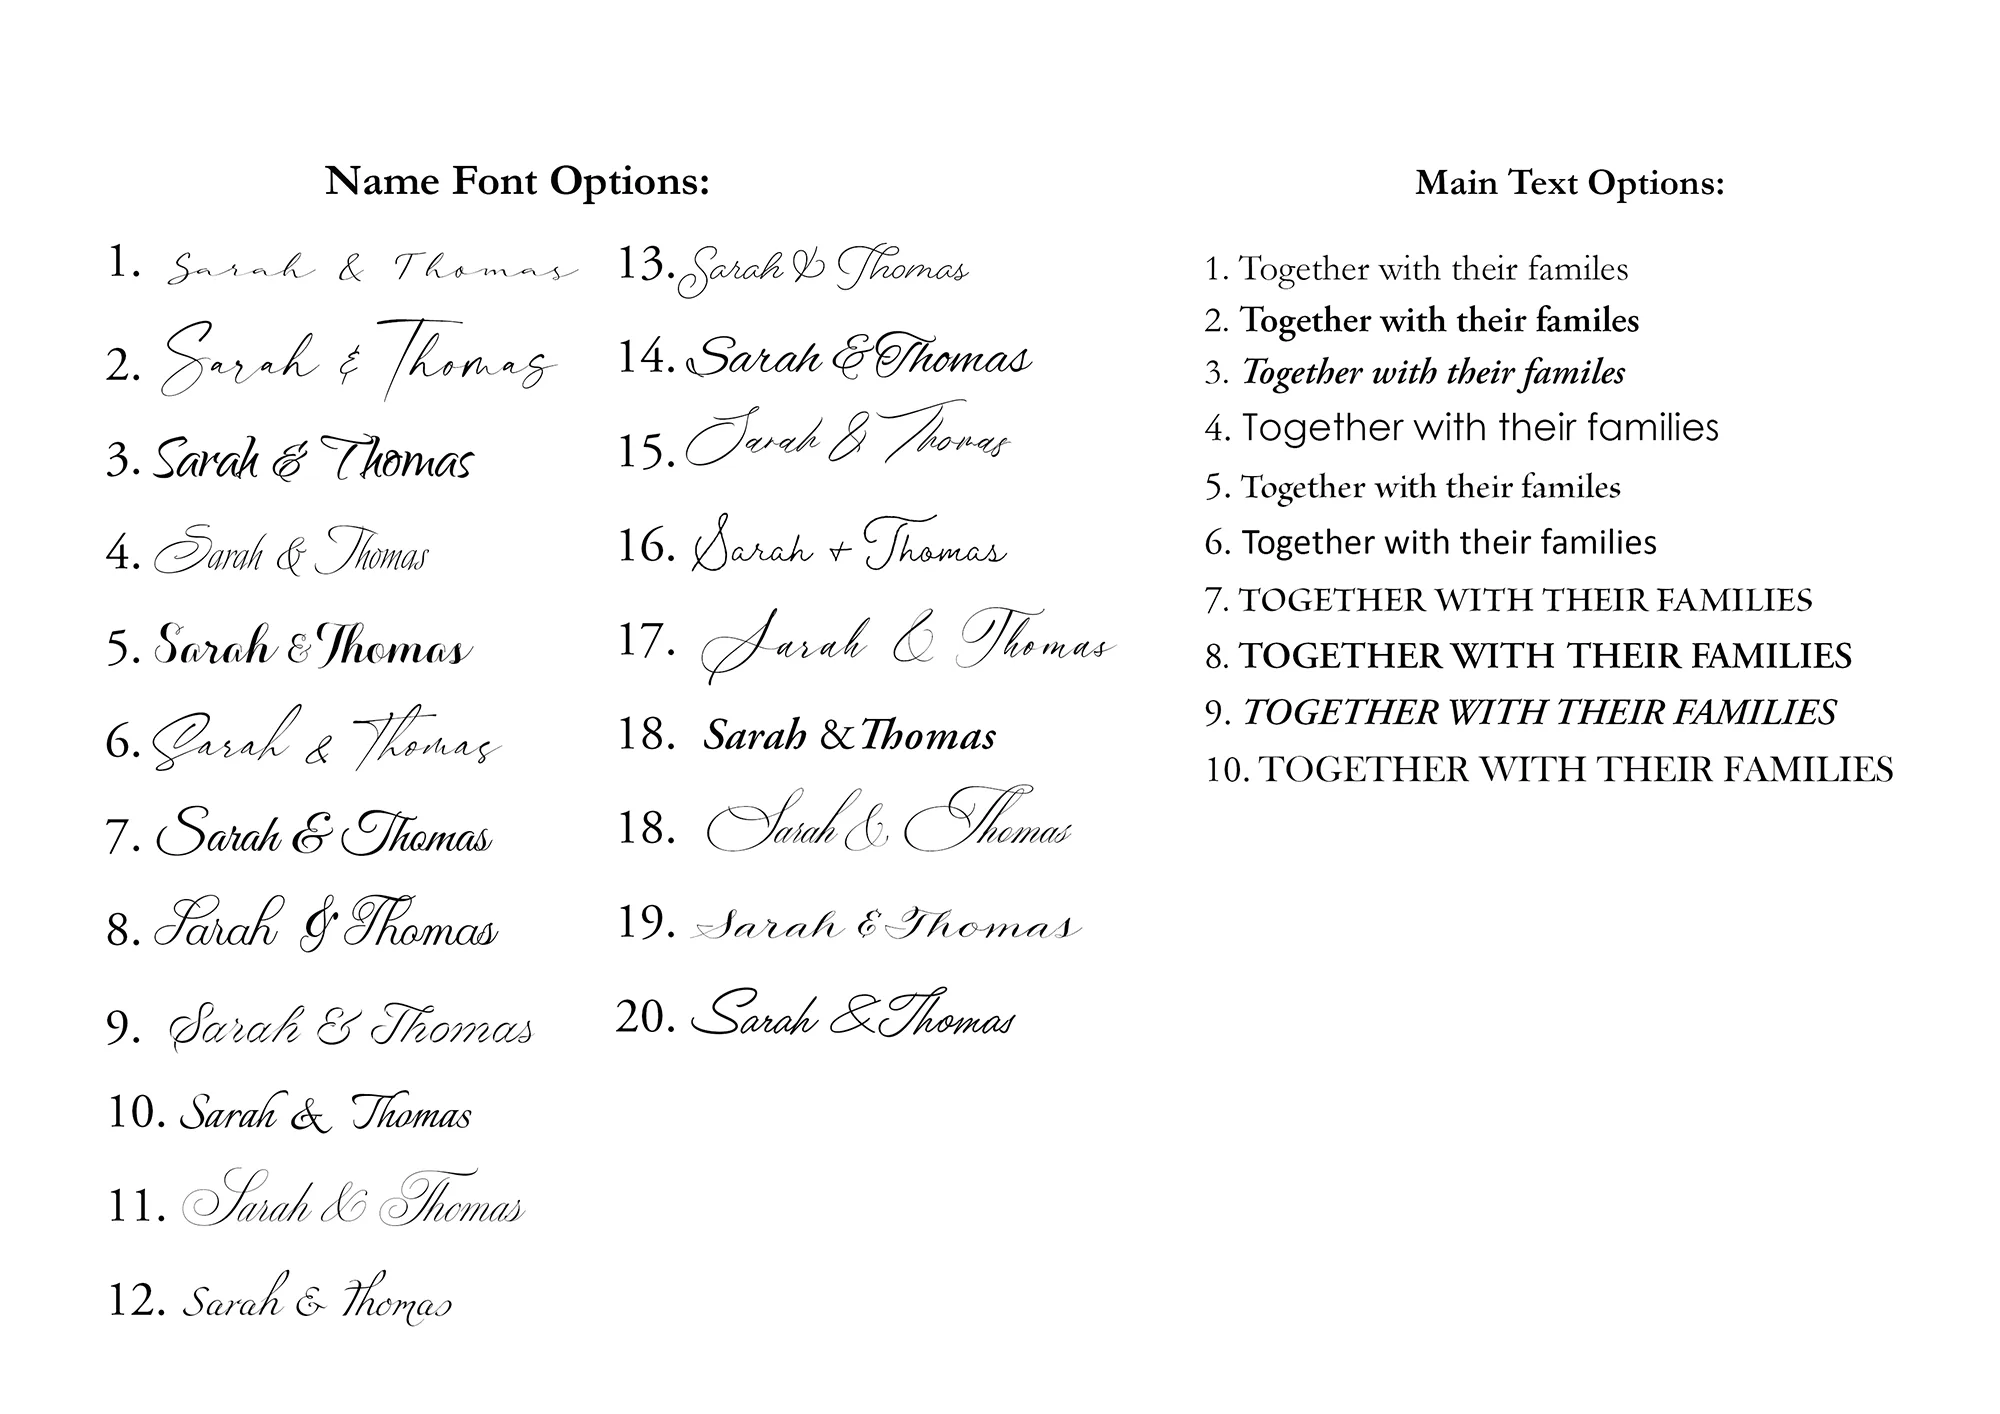 Name Font Options:
1. Sarah & Thomas
2. Sarah & Thomas
3. Sarah & Thomas
4. Sarah & Thomas
5. Sarah & Thomas
6. Sarah & Thomas
7. Sarah & Thomas
8. Sarah & Thomas
9. Sarah & Thomas
10. Sarah & Thomas
11. Sarah & Thomas
12. Sarah & Thomas
13. Sarah & Thomas
14. Sarah & Thomas
15. Sarah & Thomas
16. Sarah + Thomas
17. Sarah & Thomas
18. Sarah & Thomas
18. Sarah & Thomas
19. Sarah & Thomas
20. Sarah & Thomas
Main Text Options:
1. Together with their familes
2. Together with their familes
3. Together with their familes
4. Together with their families
5. Together with their familes
6. Together with their families
7. TOGETHER WITH THEIR FAMILIES
8. TOGETHER WITH THEIR FAMILIES
9. TOGETHER WITH THEIR FAMILIES
10. TOGETHER WITH THEIR FAMILIES